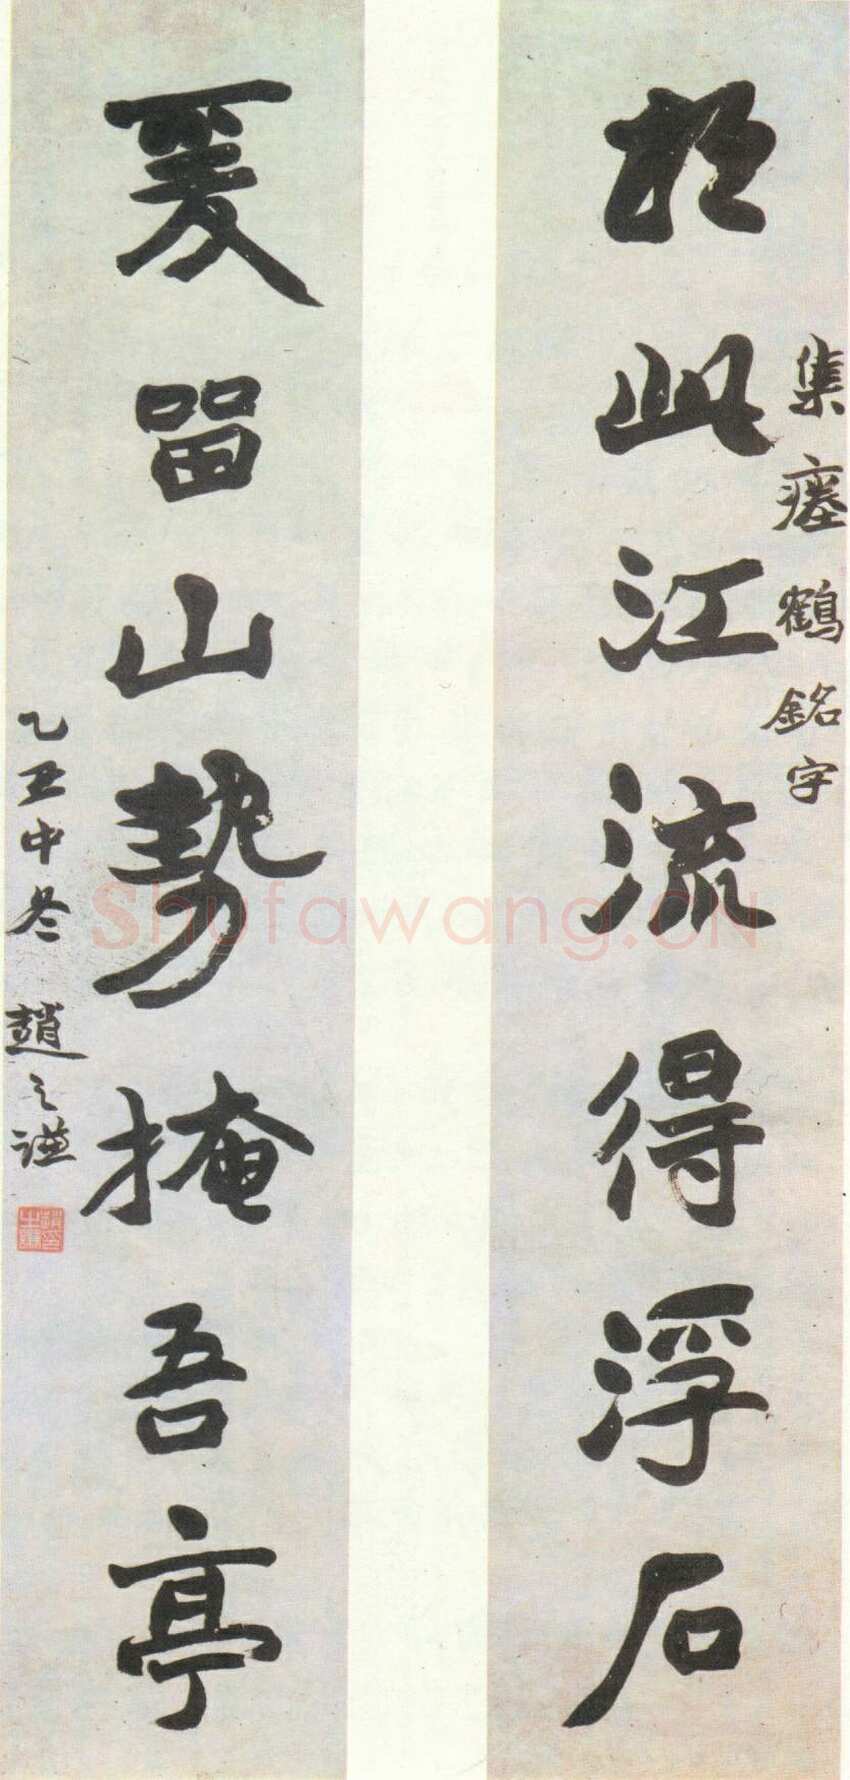 集瘞鶴銘字
於此江流得浮石
爰留山勢掩吾亭
乙丑中冬 趙之謙
Shufawang.CN